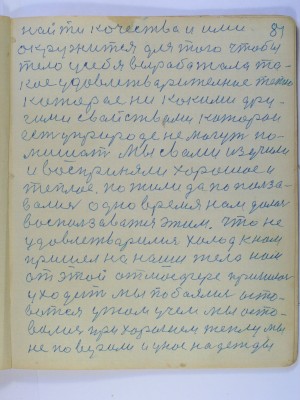 найти качества и ими 81
окружится для того чтобы
тело у себя вырабатала та-
кое удовлетварителное тепло
катерае ни какими дру-
гими свайствами каторои
есть у природе не могут по-
мишат мы с вами изучили
и восприняли харошое и
теплае. пожили да попольза-
вались одно время нам дали
воспользаватся этим. что не
удовлетварился холод к нам
пришел на наши тело нам
от этой атмосфере пришлось
уходить мы пабаялис оста-
ватся
мы оста-
вались при харошем теплу мы
не поверали и у нас надежды